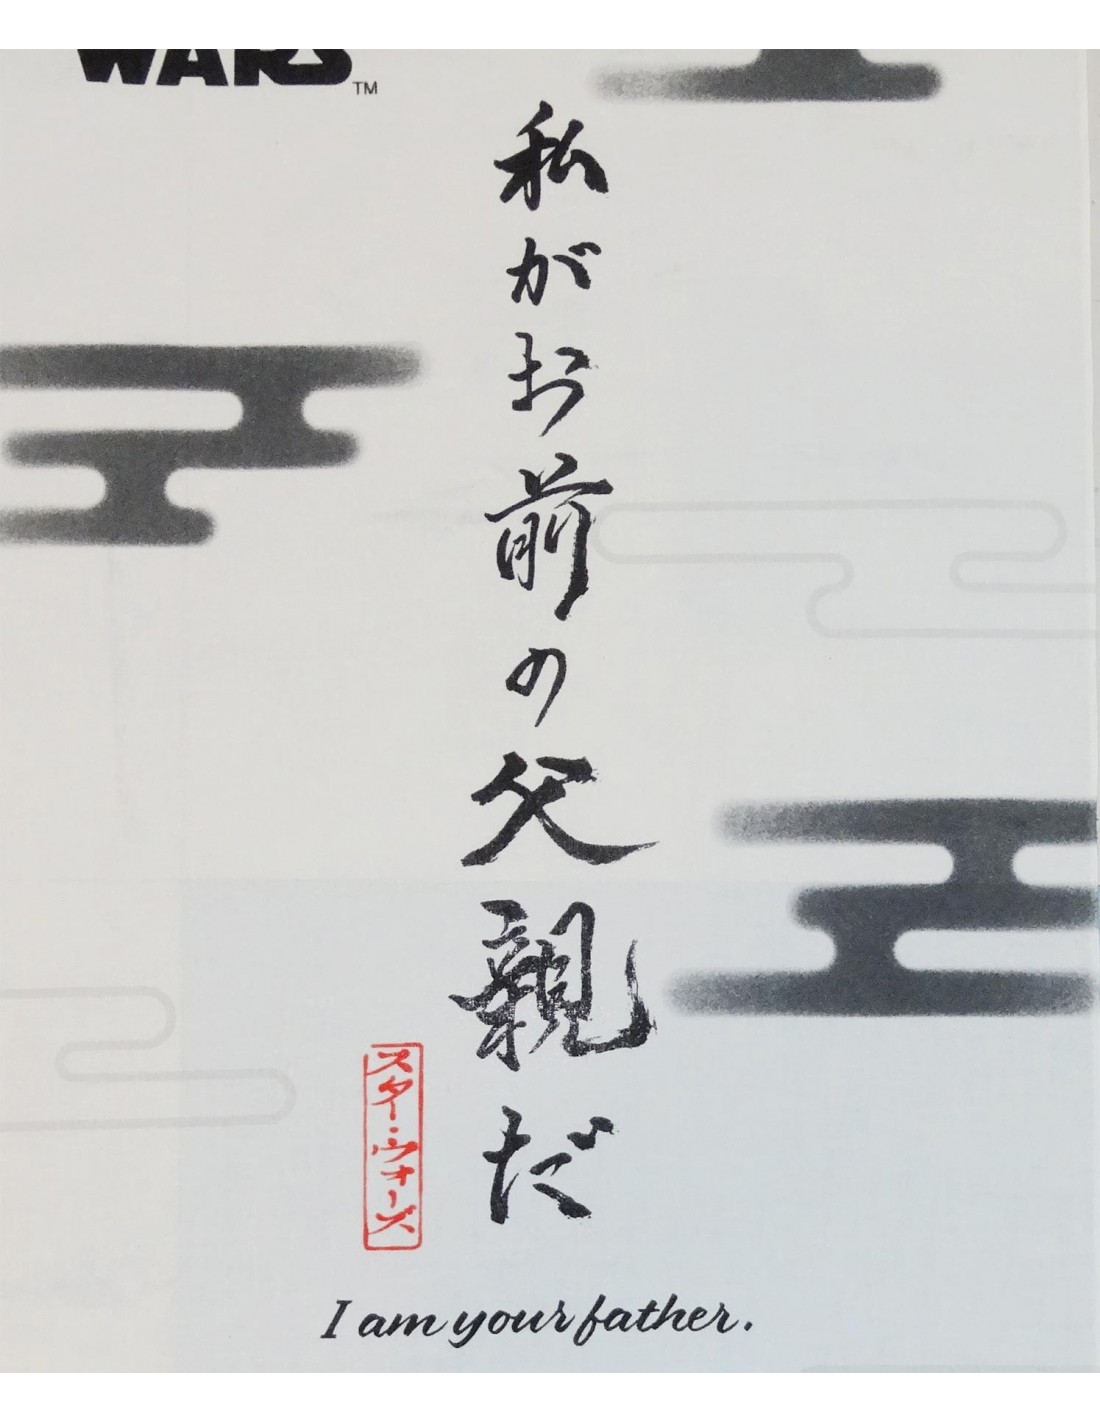 WARS
TM
私がお前の父親だ
スター・ウォーズ
I am your father.